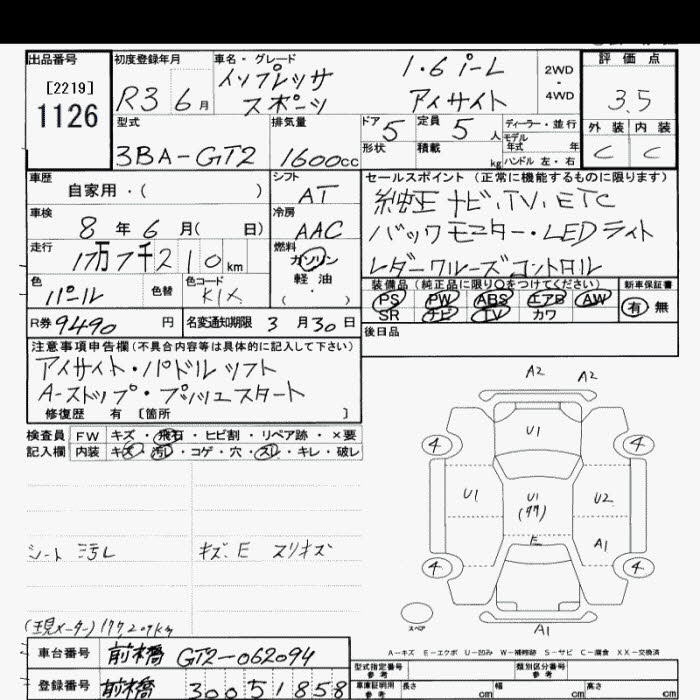 出品番号
[2219]
1126
初度登録年月
R3 6月
車名・グレード
インプレッサ 1.6 i-L
スポーツ アイサイト
2WD
・
4WD
評価点
3.5
型式
3BA-GT2
排気量
1600cc
ドア 5
定員 5人
形状
積載 kg
ディーラー・並行
モデル
年式 年
ハンドル 左・右
外装 内装
C C
車歴
自家用・( )
シフト
AT
車検
8年6月( 日)
冷房
AAC
走行
1万7千210km
燃料
ガソリン
軽油
( ・ )
色
パール
色替
色コード
K1X
R券 9490円
名変通知期限 3月30日
セールスポイント (正常に機能するものに限ります)
純正ナビ・TV・ETC
バックモニター・LEDライト
レーダークルーズコントロル
装備品(純正品に限り○をつけてください)
PS PW ABS エアB AW
SR ナビ TV カワ
新車保証書
有 無
後日品
注意事項申告欄(不具合内容等は具体的に記入して下さい)
アイサイト・パドルシフト
A-ストップ・プッシュスタート
修復歴 有 〔箇所 〕
検査員 FW キズ・飛石・ヒビ割・リペア跡・×要
記入欄 内装 キズ・汚レ・コゲ・穴・スレ・キレ・破レ
シート汚レ キズ、E スリキズ
(現メーター)17720km
A2 A2
U1
4 4
U1 U1 U2
E A1
4 4
スペア
A1
A-キズ E-エクボ U-凹み W-補修跡 S-サビ C-腐食 XX-交換済
車台番号 前橋 GT2-062094
登録番号 前橋 300 51858
型式指定番号
参考
類別区分番号
参考
車庫証明用
参考
長さ cm
幅 cm
高さ cm